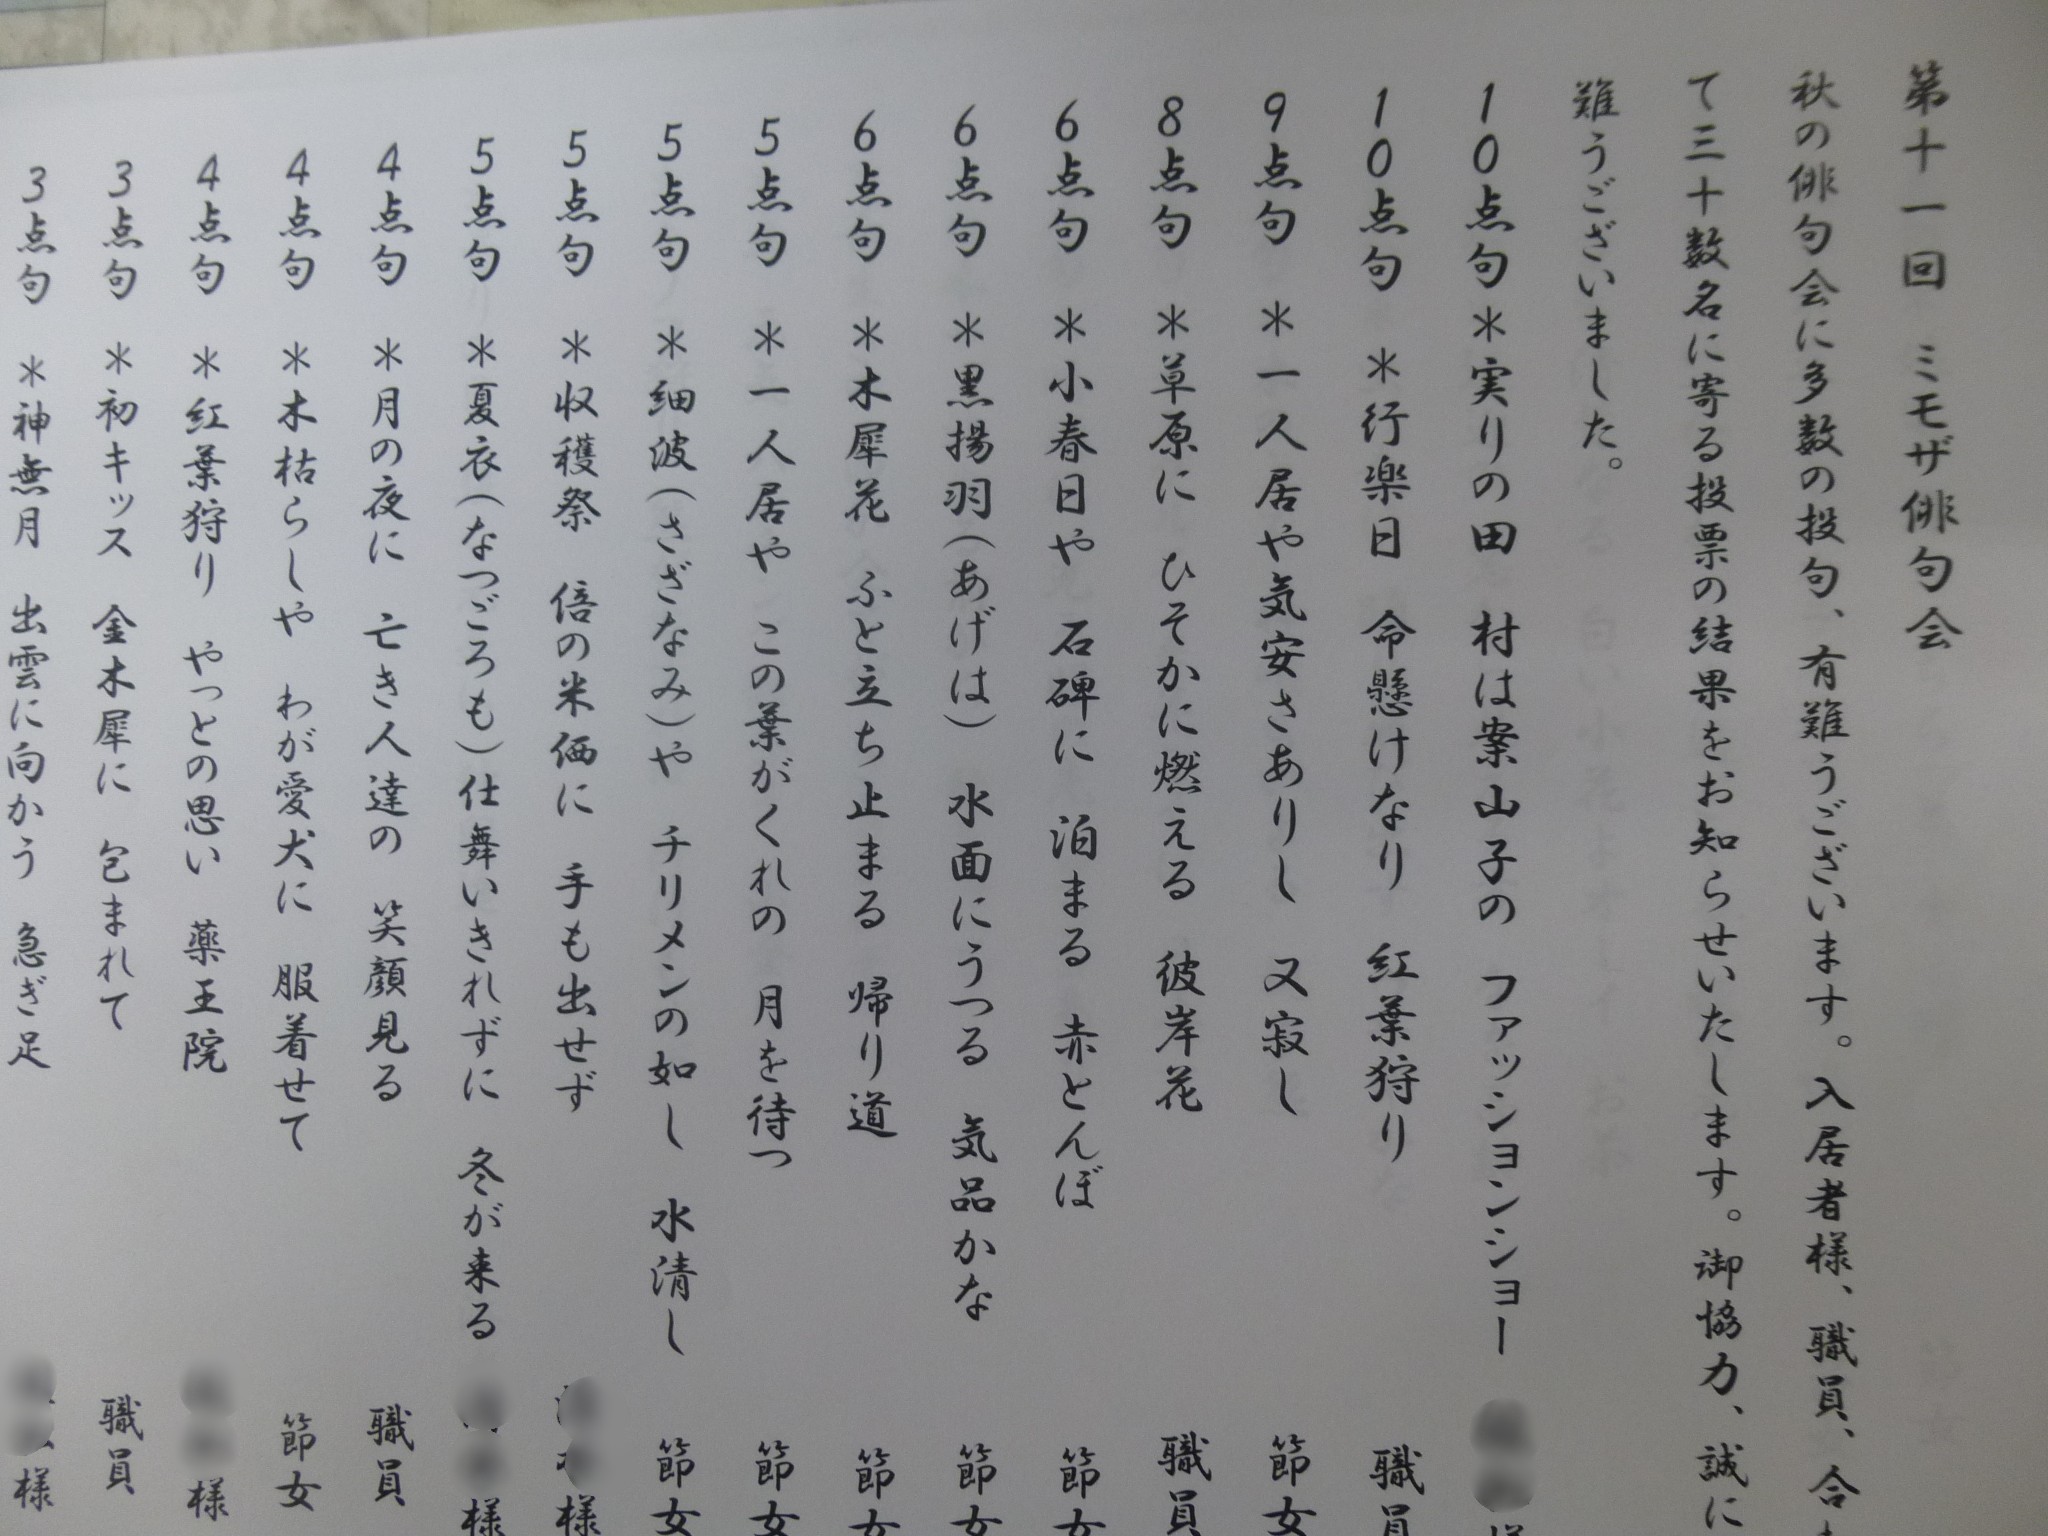 第十一回 ミモザ俳句会
秋の俳句会に多数の投句、有難うございます。入居者様、職員、合
て三十数名に寄る投票の結果をお知らせいたします。御協力、誠に
難うございました。
10点句＊実りの田 村は案山子の ファッションショー 様
10点句 ＊行楽日 命懸けなり 紅葉狩り 職員
9点句 ＊一人居や気安さありし 又寂し 節女
8点句 ＊草原に ひそかに燃える 彼岸花 職員
6点句 ＊小春日や 石碑に 泊まる 赤とんぼ 節女
6点句 ＊黒揚羽(あげは) 水面にうつる 気品かな 節女
6点句 ＊木犀花 ふと立ち止まる 帰り道 節女
5点句 ＊一人居や この葉がくれの 月を待つ 節女
5点句 ＊細波(さざなみ)や チリメンの如し 水清し 節女
5点句 ＊収穫祭 倍の米価に 手も出せず 様
5点句 ＊夏衣(なつごろも)仕舞いきれずに 冬が来る 様
4点句 ＊月の夜に 亡き人達の 笑顔見る 職員
4点句 ＊木枯らしや わが愛犬に 服着せて 節女
4点句 ＊紅葉狩り やっとの思い 薬王院 様
3点句 ＊初キッス 金木犀に 包まれて 職員
3点句 ＊神無月 出雲に向かう 急ぎ足 様